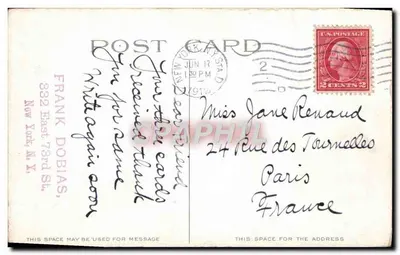 POST CARD
U.S. POSTAGE
2 CENTS 2
NEW YORK, N.Y. STA. D
JUN 17
PM
Dear friend
Your three cards
received thank
you for same
Write again soon
FRANK DOBIAS,
332 East 73rd St.
New York, N. Y.
Miss Jane Renaud
24 Rue des Tournelles
Paris
France
Cartepostale
THIS SPACE MAY BE USED FOR MESSAGE
THIS SPACE IS FOR THE ADDRESS